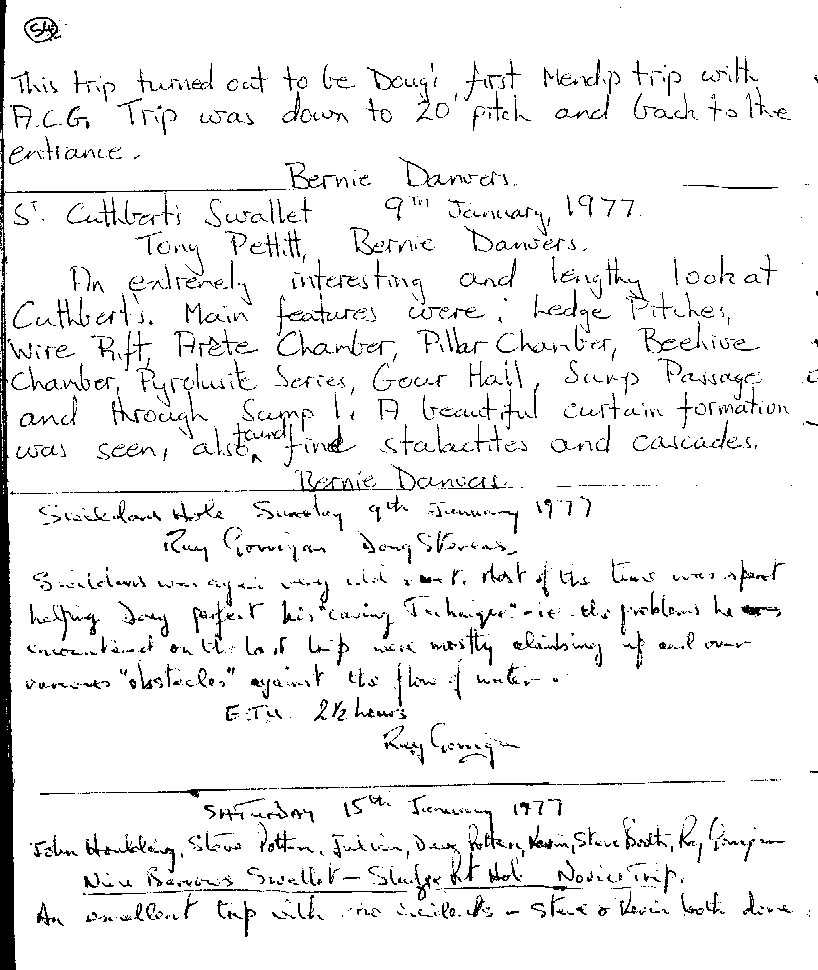 54
This trip turned out to be Doug's first Mendip trip with
A.C.G. Trip was down to 20' pitch and back to the
entrance.
Bernie Danvers.
St. Cuthbert's Swallet 9TH January, 1977.
Tony Pettitt, Bernie Danvers.
An extremely interesting and lengthy look at
Cuthbert's. Main features were: Ledge Pitches,
Wire Rift, Arête Chamber, Pillar Chamber, Beehive
Chamber, Pyrolusite Series, Gour Hall, Sump Passage
and through Sump 1. A beautiful curtain formation
was seen, also found fine stalactites and cascades.
Bernie Danvers
Swildons Hole Sunday 9th January 1977
Ray Gorrigan Doug Stevens
Swildons was again very wet. Most of the time was spent
helping Doug perfect his "caving Technique" - ie the problems he
encountered on the last trip were mostly climbing up and over
various "obstacles" against the flow of water.
E.T.U. 2½ hours
Ray Gorrigan
SATURDAY 15th January 1977
John Steve Potter, Julian, Doug Potter, Kevin, Steve Booth, Ray Gorrigan
Nine Barrows Swallet - Sludge Pit Hole Novices Trip.
An excellent trip with no incidents - Steve & Kevin both done